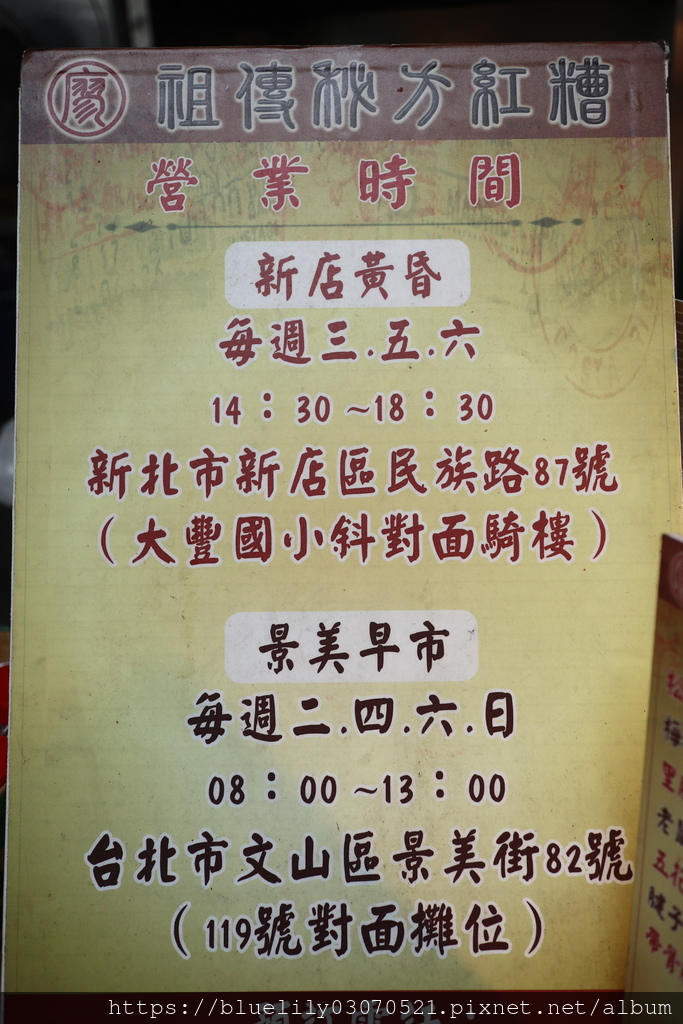 廖 祖傳秘方紅糟
營業時間
新店黃昏
每週三.五.六
14：30~18：30
新北市新店區民族路87號
（大豐國小斜對面騎樓）
景美早市
每週二.四.六.日
08：00~13：00
台北市文山區景美街82號
（119號對面攤位）
https://bluelily03070521.pixnet.net/album